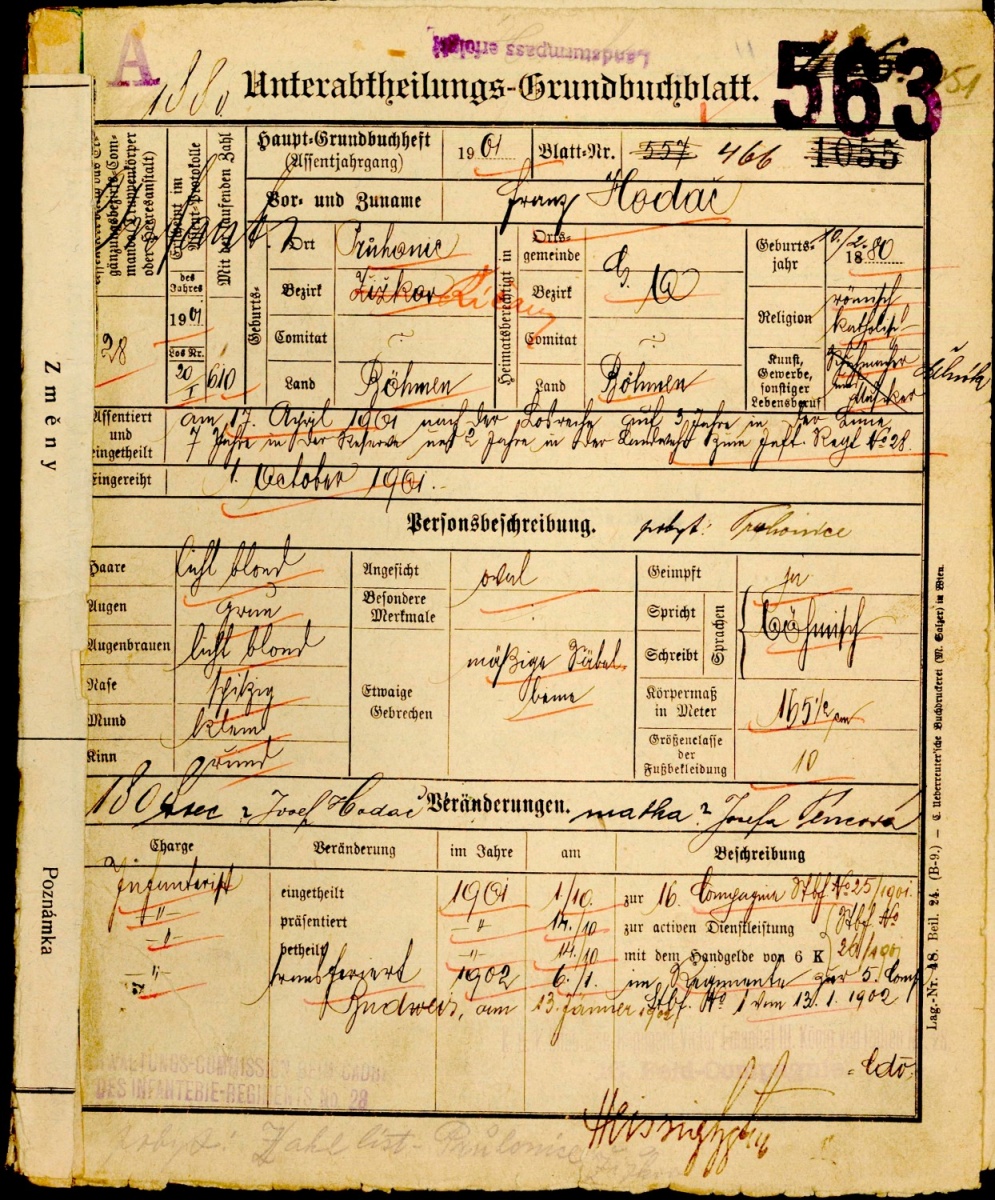 A
Landsturmpass erfolgt
1880
Unterabtheilungs-Grundbuchblatt.
563
51
gänzungsbezirks-Com-
mando, Truppenkörper
oder Heeresanstalt)
28
Assentirt im
Assent-Protokolle
des
Jahres
1901
Los Nr.
20
I
Mit der laufenden Zahl
610
Haupt-Grundbuchheft
(Assentjahrgang)
1901
Blatt-Nr.
557
466
1055
Vor- und Zuname
Franz Hodač
Geburts-
Ort
Průhonic
Bezirk
Žižkov Říčany
Comitat
Land
Böhmen
Heimatsberechtigt in
Orts-
gemeinde
Bezirk
Comitat
Land
Böhmen
Geburts-
jahr
10./2. 1880
Religion
römisch
katholisch
Kunst,
Gewerbe,
sonstiger
Lebensberuf
Schuhmacher
und
Musiker
dělník
Assentiert
und
eingetheilt
am 17. April 1901 nach der Losreihe auf 3 Jahre in der Linie,
7 Jahre in der Reserve und 2 Jahre in der Landwehr zum Inft. Regt No 28.
Eingereiht
1. October 1901.
Personsbeschreibung.
pobyt: Průhonice
Haare
licht blond
Augen
grau
Augenbrauen
licht blond
Nase
spitzig
Mund
klein
Kinn
rund
Angesicht
oval
Besondere
Merkmale
Etwaige
Gebrechen
mäßige Säbel-
beine
Geimpft
ja
Spricht
Schreibt
Sprachen
böhmisch
Körpermaß
in Meter
165½ cm
Größenclasse
der
Fußbekleidung
10
otec ? Josef Hodač
Veränderungen.
matka ? Josefa Pencová
Charge
Veränderung
im Jahre
am
Beschreibung
Infanterist
eingetheilt
1901
1/10.
zur 16. Compagnie Stbf. No 25/1901.
"
präsentiert
"
14./10
zur activen Dienstleistung
Stbf. No
"
betheilt
"
14./10
mit dem Handgelde von 6 K
"
transferiert
1902
6./1.
im Regimente zur 5. Comp.
Budweis, am 13. Jänner 1902
Stbf. No 1 vom 13. 1. 1902
VERWALTUNGS-COMMISSION BEIM CADRE
DES INFANTERIE-REGIMENTS No. 28
pobyt: Průhonice
Změny
Poznámka
Lag.-Nr. 48. Beil. 24. (B-9.) — C. Ueberreuter'sche Buchdruckerei (M. Salzer) in Wien.